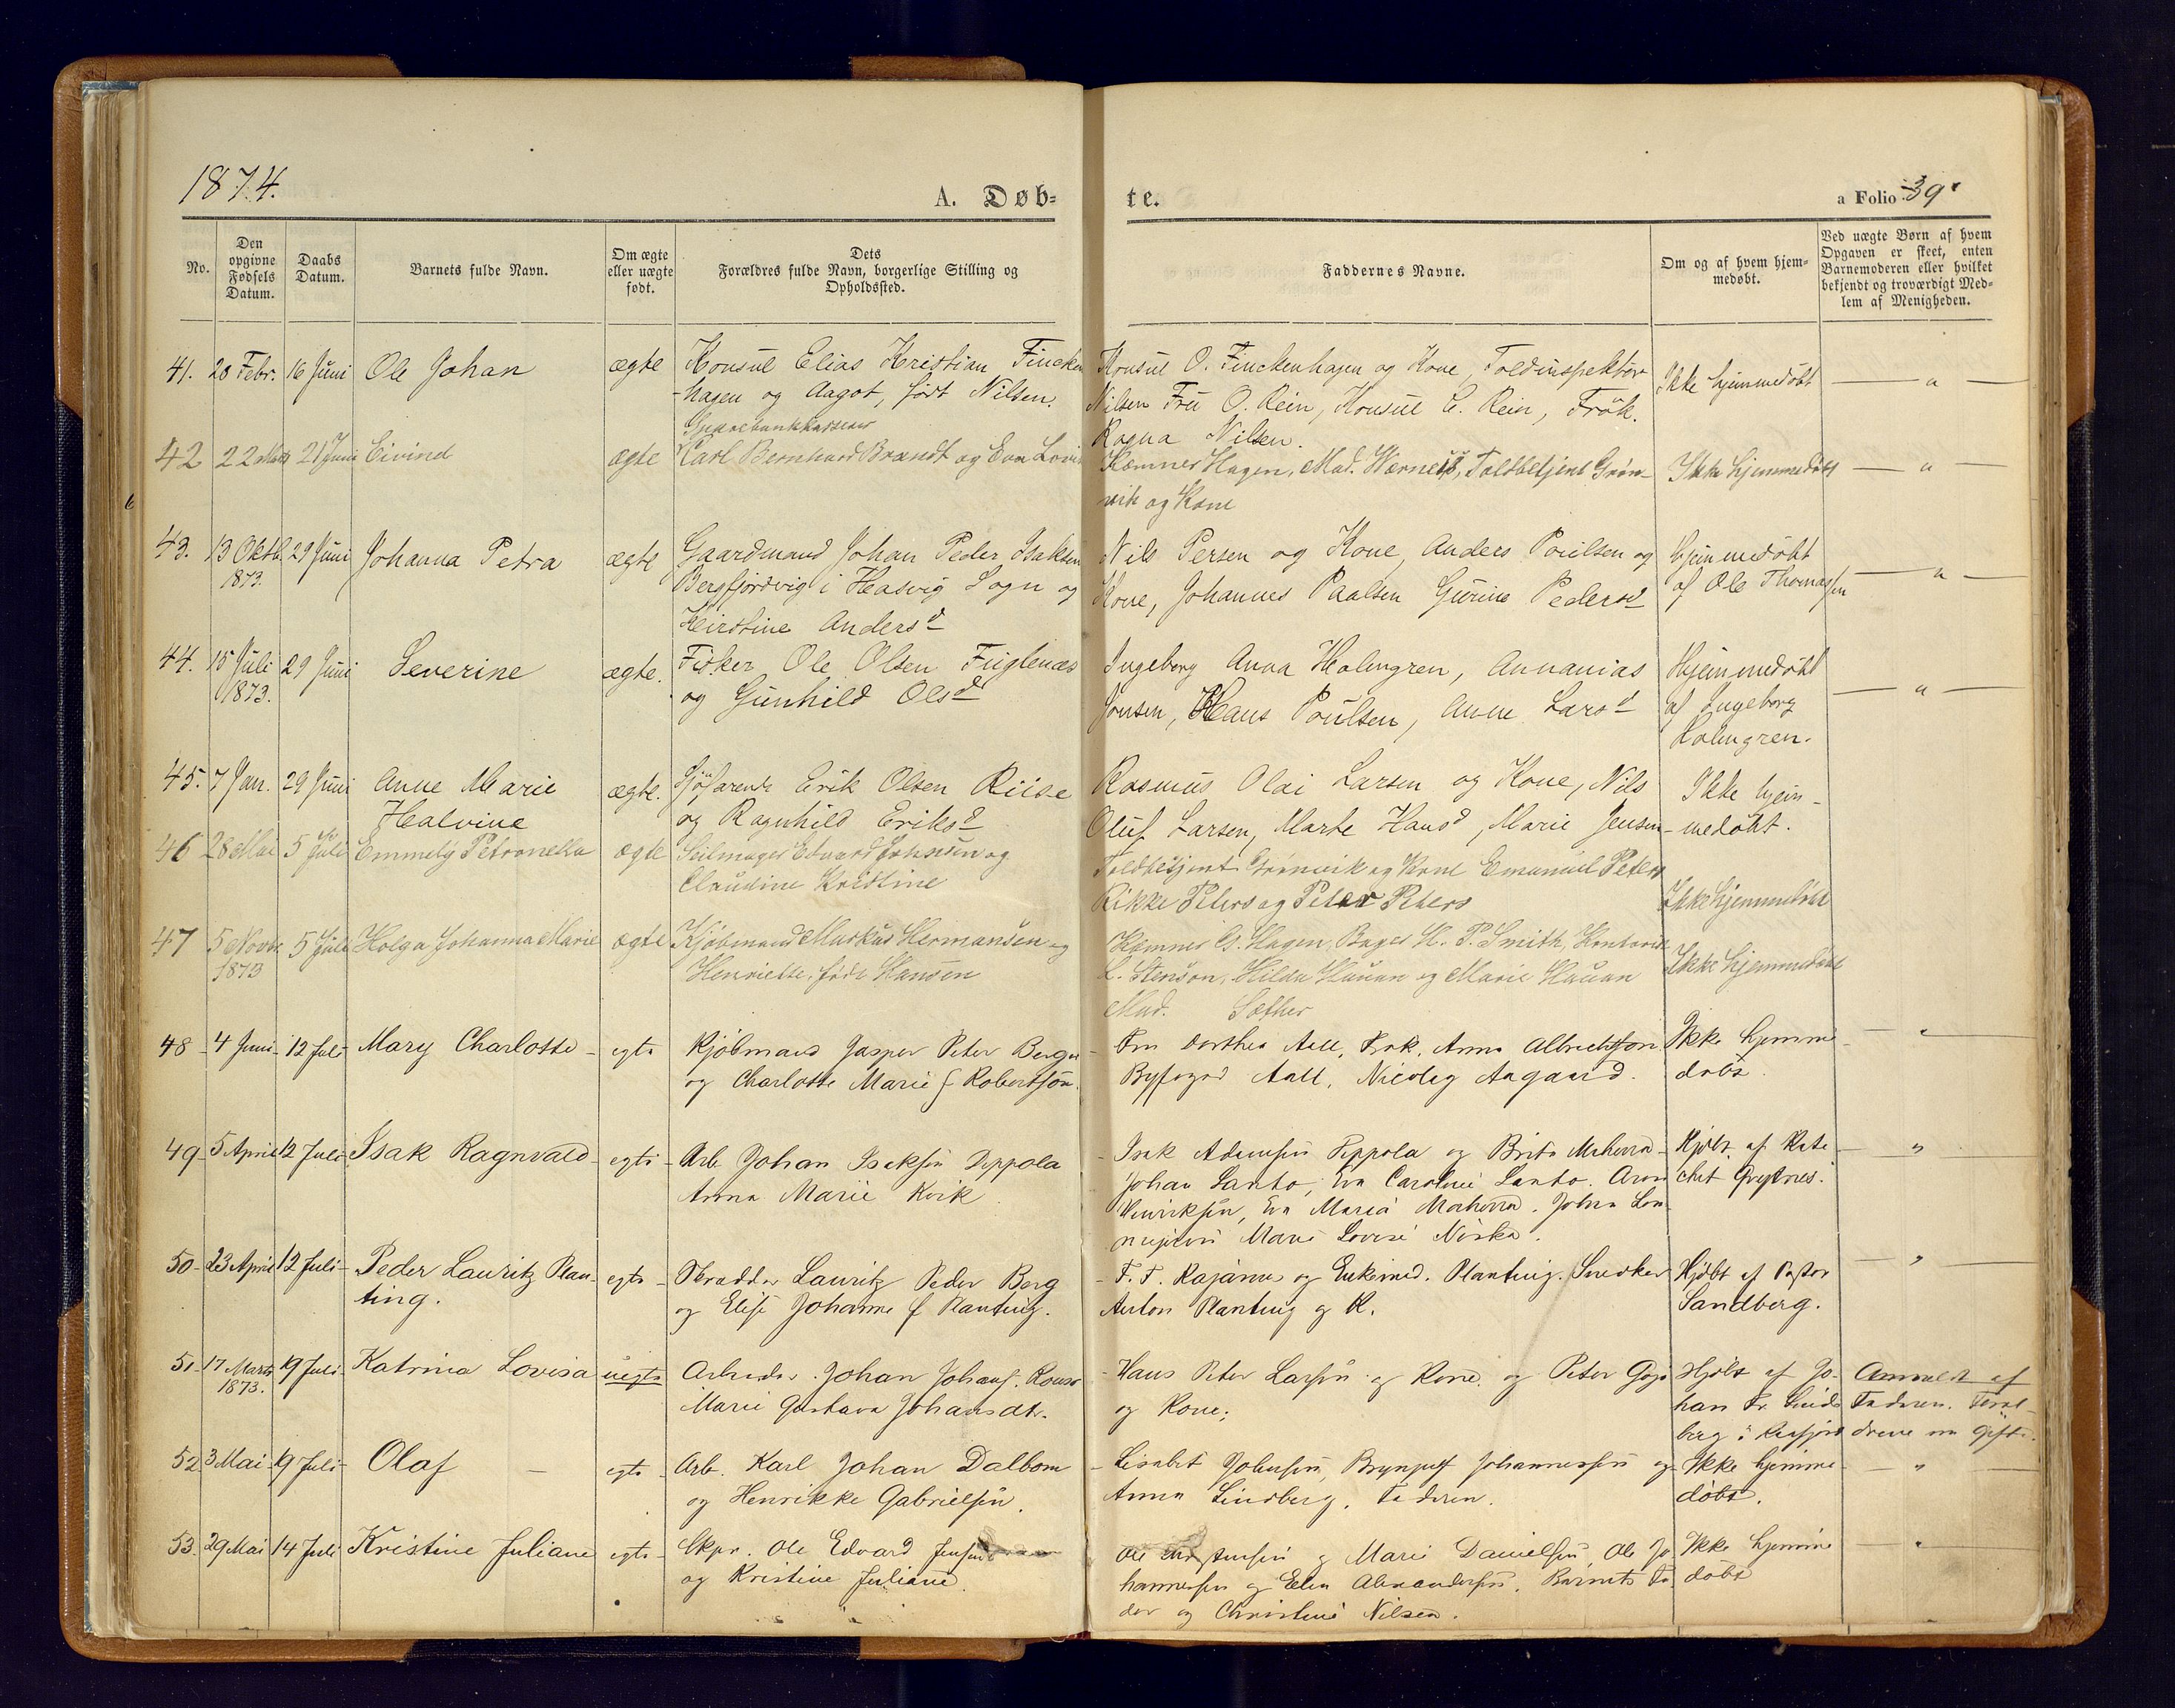 1874.
A. Døb-
te.
a Folio 39.
No.
Den opgivne Fødsels Datum.
Daabs Datum.
Barnets fulde Navn.
Om ægte eller uægte født.
Dets Forældres fulde Navn, borgerlige Stilling og Opholdssted.
Faddernes Navne.
Om og af hvem hjemmedøbt.
Ved uægte Børn af hvem Opgaven er skeet, enten Barnemoderen eller hvilket bekjendt og troværdigt Medlem af Menigheden.
41. 28 Febr. 16 Juni Ole Johan ægte Konsul Elias Kristian Fincken Konsul O. Finckenhagen og Kone, Toldinspektør Ikke hjemmedøbt — " —
-hagen og Aagot, født Nilsen. Nilsen Fru O. Rein, Konsul C. Rein, Frøk.
Sparebankkasserer Ragna Nilsen.
42 22 21 Juni Eivind ægte Carl Bernhard Brandt og Eva Kæmner Hagen, Mad. Toldbetjent Grøn- Ikke hjemmedøbt — " —
vik og Kone
43. 13 Oktb. 29 Juni Johanna Petra ægte Gaardmand Johan Peder Isaksen Nils Persen og Kone, Anders Poulsen og hjemmedøbt
1873. Bergfjordvig i Hasvig Sogn og Kone, Johannes Paalsen Gurine Pedersd af Ole Thomassen — " —
Kirstine Andersd
44. 15 Juli 29 Juni Severine ægte. Fisker Ole Olsen Fuglenæs Ingeborg Anna Holmgren, Annanias Hjemmedøbt
1873. og Gunhild Olsd Jonsen, Hans Poulsen, Anne Larsd af Ingeborg — " —
Holmgren.
45. 7 Jan. 29 Juni Anne Marie ægte. Sjøfarende Erik Olsen Riise Rasmus Olai Larsen og Kone, Nils Ikke hjem-
Halvine og Ragnhild Eriksd Oluf Larsen, Marte Hansd, Marie Jensen -medøbt.
46 28 Mai 5 Juli Emmely Petronella ægte Seilmager Edvard Johnsen og Toldbetjent Grønvik og Kone Emanuel Peters
Claudine Kristine Rikke Peters og Peter Peters Ikke hjemmedøbt
47 5 Novbr. 5 Juli Helga Johanna Marie ægte Kjøbmand Markus Hermansen og Kæmner G. Hagen, Bager H. P. Smith,
1873 Henriette, føde Hansen Hilda Hauan og Marie Hauan Ikke hjemmedøbt
Mad. Sæther
48 4 Juni 12 Juli Mary Charlotte egte Kjøbmand Jasper Peter Berger Fru Dorthea Aall, Frøk. Anna Albrechtson Ikke hjemme — " —
og Charlotte Marie f. Robertson. Byfoged Aall, Nicolay Aagaard. døbt.
49 5 April 12 Juli Isak Ragnvald egte Arb. Johan Isaksen Peppola Isak Adamsen Peppola og Brita Hjdbt. af Kate — " —
Anna Marie Kvik Johan Lanto, Eva Caroline Lanto. Aron chet
Henriksen, Eva Maria Johan
Marie Lovise Niska.
50 23 April 12 Juli Peder Lauritz Plan- egte Skrædder Lauritz Peder Berg F. F. og Enkemad. Planting. Snedker Hjdbt af Pastor — " —
ting. og Elise Johanne f. Planting. Anton Planting og K. Sandberg.
51 17 Marts 19 Juli Katrina Lovisa uegte Arbeider Johan Johans. Hans Peter Larsen og Kone og Peter Hjdbt af Jo- Anmeldt af
1873. Marie Gustava Johansdtr. og Kone; han Fr. Lind- Faderen. Foræl-
berg i drene nu gifte.
52 3 Mai 19 Juli Olaf — egte Arb. Karl Johan Dalbom Lisabet Johnsen, Brynjulf Johannessen og Ikke hjemme — " —
og Henrikke Gabrielsen. Anna Lindberg. Faderen. døbt.
53. 29 Mai 14 Juli Kristine Juliane egte Skpr. Ole Edvard Jensen Ole og Marie Danielsen, Ole Jo Ikke hjemme — " —
og Kristine Juliane. hannessen og Elen Alexandersen. Barnets Fa døbt
der og Christine Nilsen.